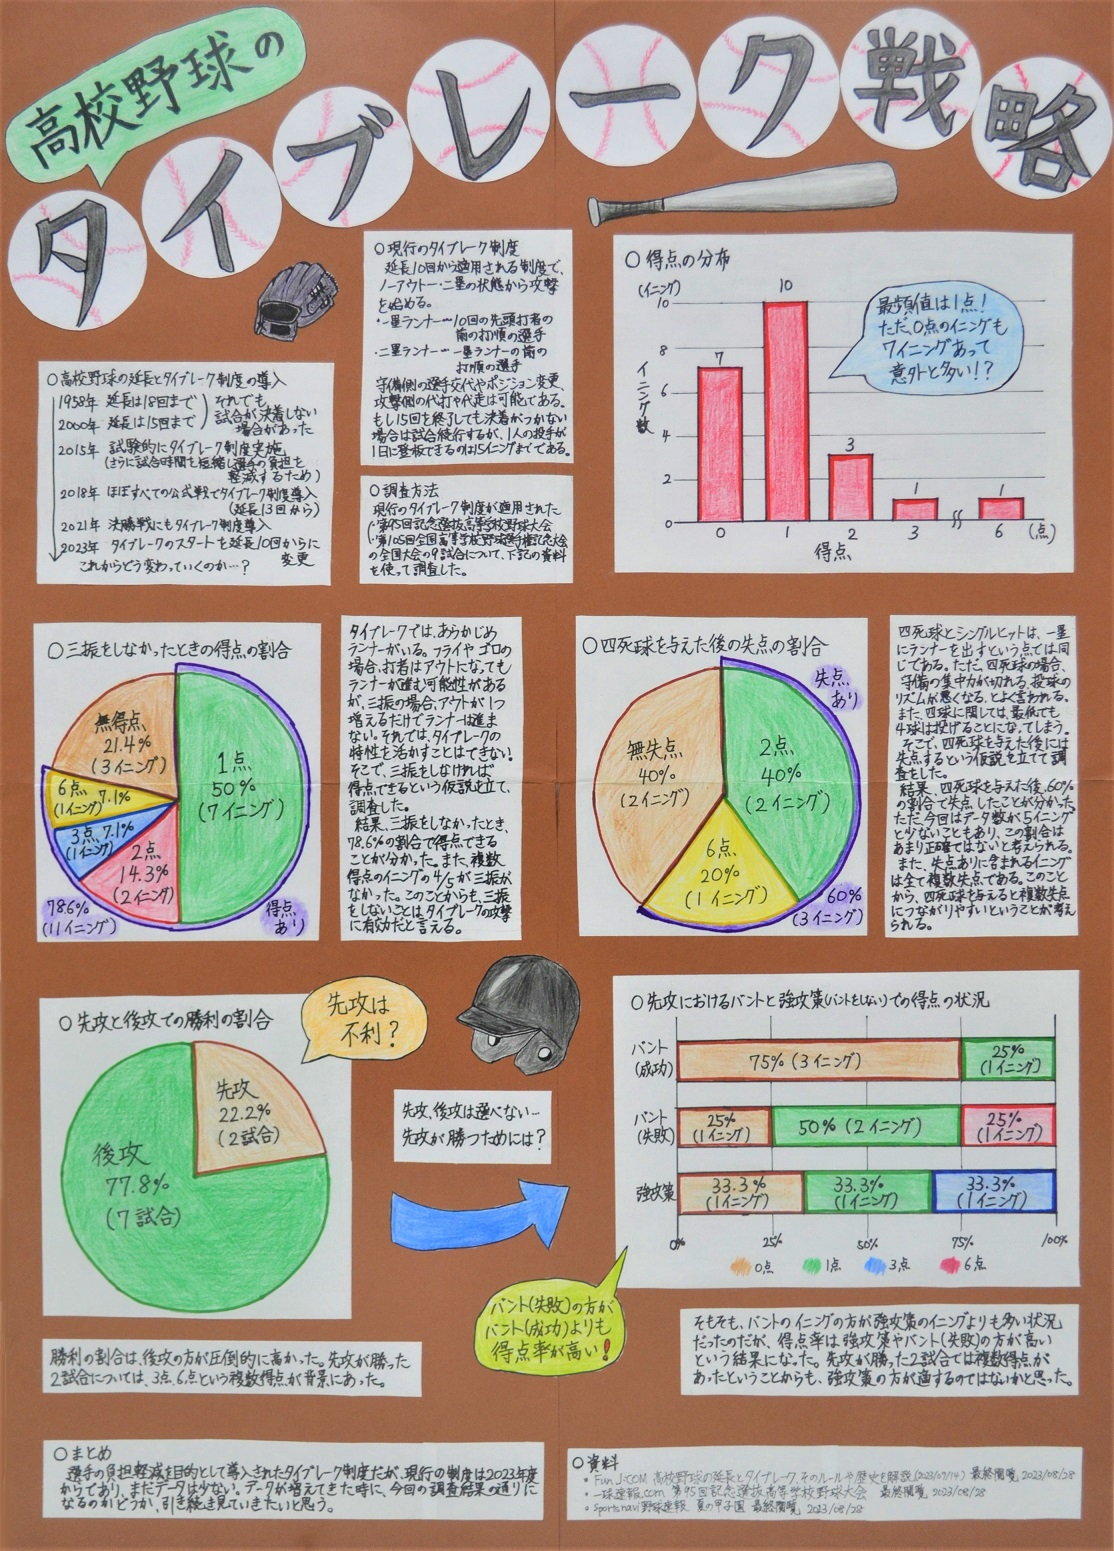 高校野球の
タイブレーク戦略
○高校野球の延長とタイブレーク制度の導入
1958年 延長は18回まで
2000年 延長は15回まで
それでも
試合が決着しない
場合があった
2015年 試験的にタイブレーク制度実施
(さらに試合時間を短縮し選手の負担を
軽減するため)
2018年 ほぼすべての公式戦でタイブレーク制度導入
(延長13回から)
2021年 決勝戦にもタイブレーク制度導入
2023年 タイブレークのスタートを延長10回からに
変更
これからどう変わっていくのか…?
○現行のタイブレーク制度
延長10回から適用される制度で、
ノーアウト一・二塁の状態から攻撃
を始める。
・一塁ランナー…10回の先頭打者の
前の打順の選手
・二塁ランナー…一塁ランナーの前の
打順の選手
守備側の選手交代やポジション変更、
攻撃側の代打や代走は可能である。
もし15回を終了しても決着がつかない
場合は試合続行するが、1人の投手が
1日に登板できるのは15イニングまでである。
○調査方法
現行のタイブレーク制度が適用された
・第95回記念選抜高等学校野球大会
・第105回全国高等学校野球選手権記念大会
の全国大会の9試合について、下記の資料
を使って調査した。
○得点の分布
(イニング)
イニング数
10
8
6
4
2
0
7
10
3
1
1
0 1 2 3 6 (点)
得点
最頻値は1点!
ただ、0点のイニングも
7イニングあって
意外と多い!?
○三振をしなかったときの得点の割合
無得点
21.4%
(3イニング)
6点
(1イニング) 7.1%
3点 7.1%
(1イニング)
2点
14.3%
(2イニング)
1点
50%
(7イニング)
78.6%
(11イニング)
得点
あり
タイブレークでは、あらかじめ
ランナーがいる。フライやゴロの
場合、打者はアウトになっても
ランナーが進む可能性がある
が、三振の場合、アウトが1つ
増えるだけでランナーは進ま
ない。それでは、タイブレークの
特性を活かすことはできない。
そこで、三振をしなければ
得点できるという仮説を立て、
調査した。
結果、三振をしなかったとき、
78.6%の割合で得点できる
ことが分かった。また、複数
得点のイニングの4/5が三振が
なかった。このことからも、三振
をしないことは、タイブレークの攻撃
に有効だと言える。
○四死球を与えた後の失点の割合
失点
あり
無失点
40%
(2イニング)
2点
40%
(2イニング)
6点
20%
(1イニング)
60%
(3イニング)
四死球とシングルヒットは、一塁
にランナーを出すという点では同
じである。ただ、四死球の場合、
守備の集中力が切れる、投球の
リズムが悪くなる、とよく言われる。
また、四球に関しては、最低でも
4球は投げることになってしまう。
そこで、四死球を与えた後には
失点するという仮説を立てて調
査をした。
結果、四死球を与えた後、60%
の割合で失点したことが分かった。
ただ、今回はデータ数が5イニング
と少ないこともあり、この割合は
あまり正確ではないと考えられる。
また、失点ありに含まれるイニング
は全て複数失点である。このこと
から、四死球を与えると複数失点
につながりやすいということが考え
られる。
○先攻と後攻での勝利の割合
先攻
22.2%
(2試合)
後攻
77.8%
(7試合)
先攻は
不利?
先攻、後攻は選べない…
先攻が勝つためには?
○先攻におけるバントと強攻策(バントをしない)での得点の状況
バント
(成功)
75% (3イニング)
25%
(1イニング)
バント
(失敗)
25%
(1イニング)
50% (2イニング)
25%
(1イニング)
強攻策
33.3%
(1イニング)
33.3%
(1イニング)
33.3%
(1イニング)
0% 25% 50% 75% 100%
0点 1点 3点 6点
バント(失敗)の方が
バント(成功)よりも
得点率が高い!
勝利の割合は、後攻の方が圧倒的に高かった。先攻が勝った
2試合については、3点、6点という複数得点が背景にあった。
そもそも、バントのイニングの方が強攻策のイニングよりも多い状況
だったのだが、得点率は強攻策やバント(失敗)の方が高い
という結果になった。先攻が勝った2試合では複数得点が
あったということからも、強攻策の方が適するのではないかと思った。
○まとめ
選手の負担軽減を目的として導入されたタイブレーク制度だが、現行の制度は2023年度
からであり、まだデータは少ない。データが増えてきた時に、今回の調査結果の通りに
なるのかどうか、引き続き見ていきたいと思う。
○資料
・Fun J:COM 高校野球の延長とタイブレーク、そのルールや歴史を解説(2023/07/14) 最終閲覧 2023/08/28
・一球速報.com 第95回記念選抜高等学校野球大会 最終閲覧 2023/08/28
・sportsnavi 野球速報 夏の甲子園 最終閲覧 2023/08/28